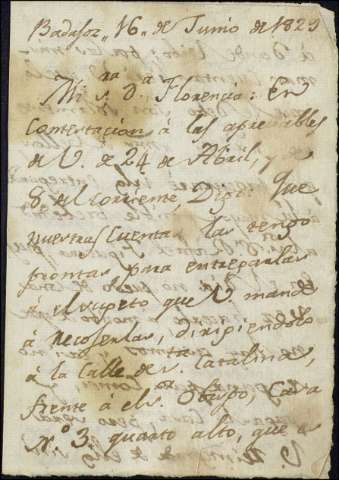 Badajoz, 16, de Junio de 1829
Mi s.ra D.a Florencia: En
Contestacion à las apreciables
de V. de 24 de Abril, y
8 del corriente, Digo: que
nuestras Cuentas las tengo
prontas para entregarlas
à el sugeto que V. mande
à recogerlas, dirigiendolo
à la Calle de s.ta Catalina,
frente à el s.r Obispo, Casa
N.o 3, quarto alto, que a